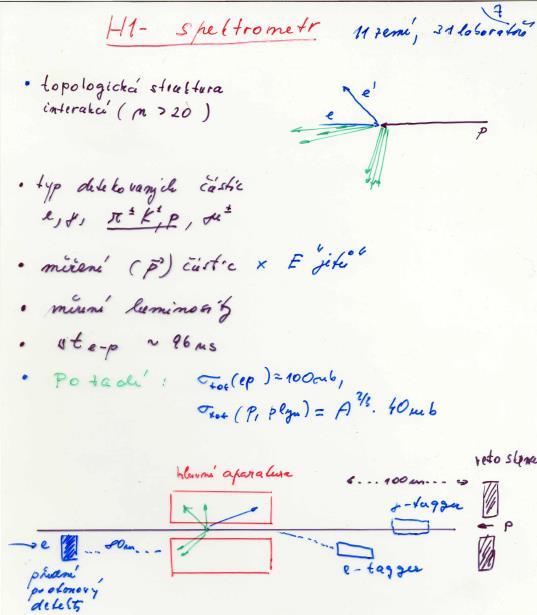 7
H1- spektrometr 11 zemí, 31 laboratoří
• topologická struktura
interakcí (n > 20)
e'
e
p
• typ detekovaných částic
e, γ, π± K±, p, μ±
• měření (p⃗) částic × E "jetů"
• měření luminosity
• Δt e-p ~ 96 ns
• Pozadí : σtot(ep) ≈ 100 mb,
σtot (p, plyn) = A^2/3 · 40 mb
hlavní aparatura
veto stěna
100m
γ-tagger
p
e
80m
e-tagger
přední
protonový
detektor